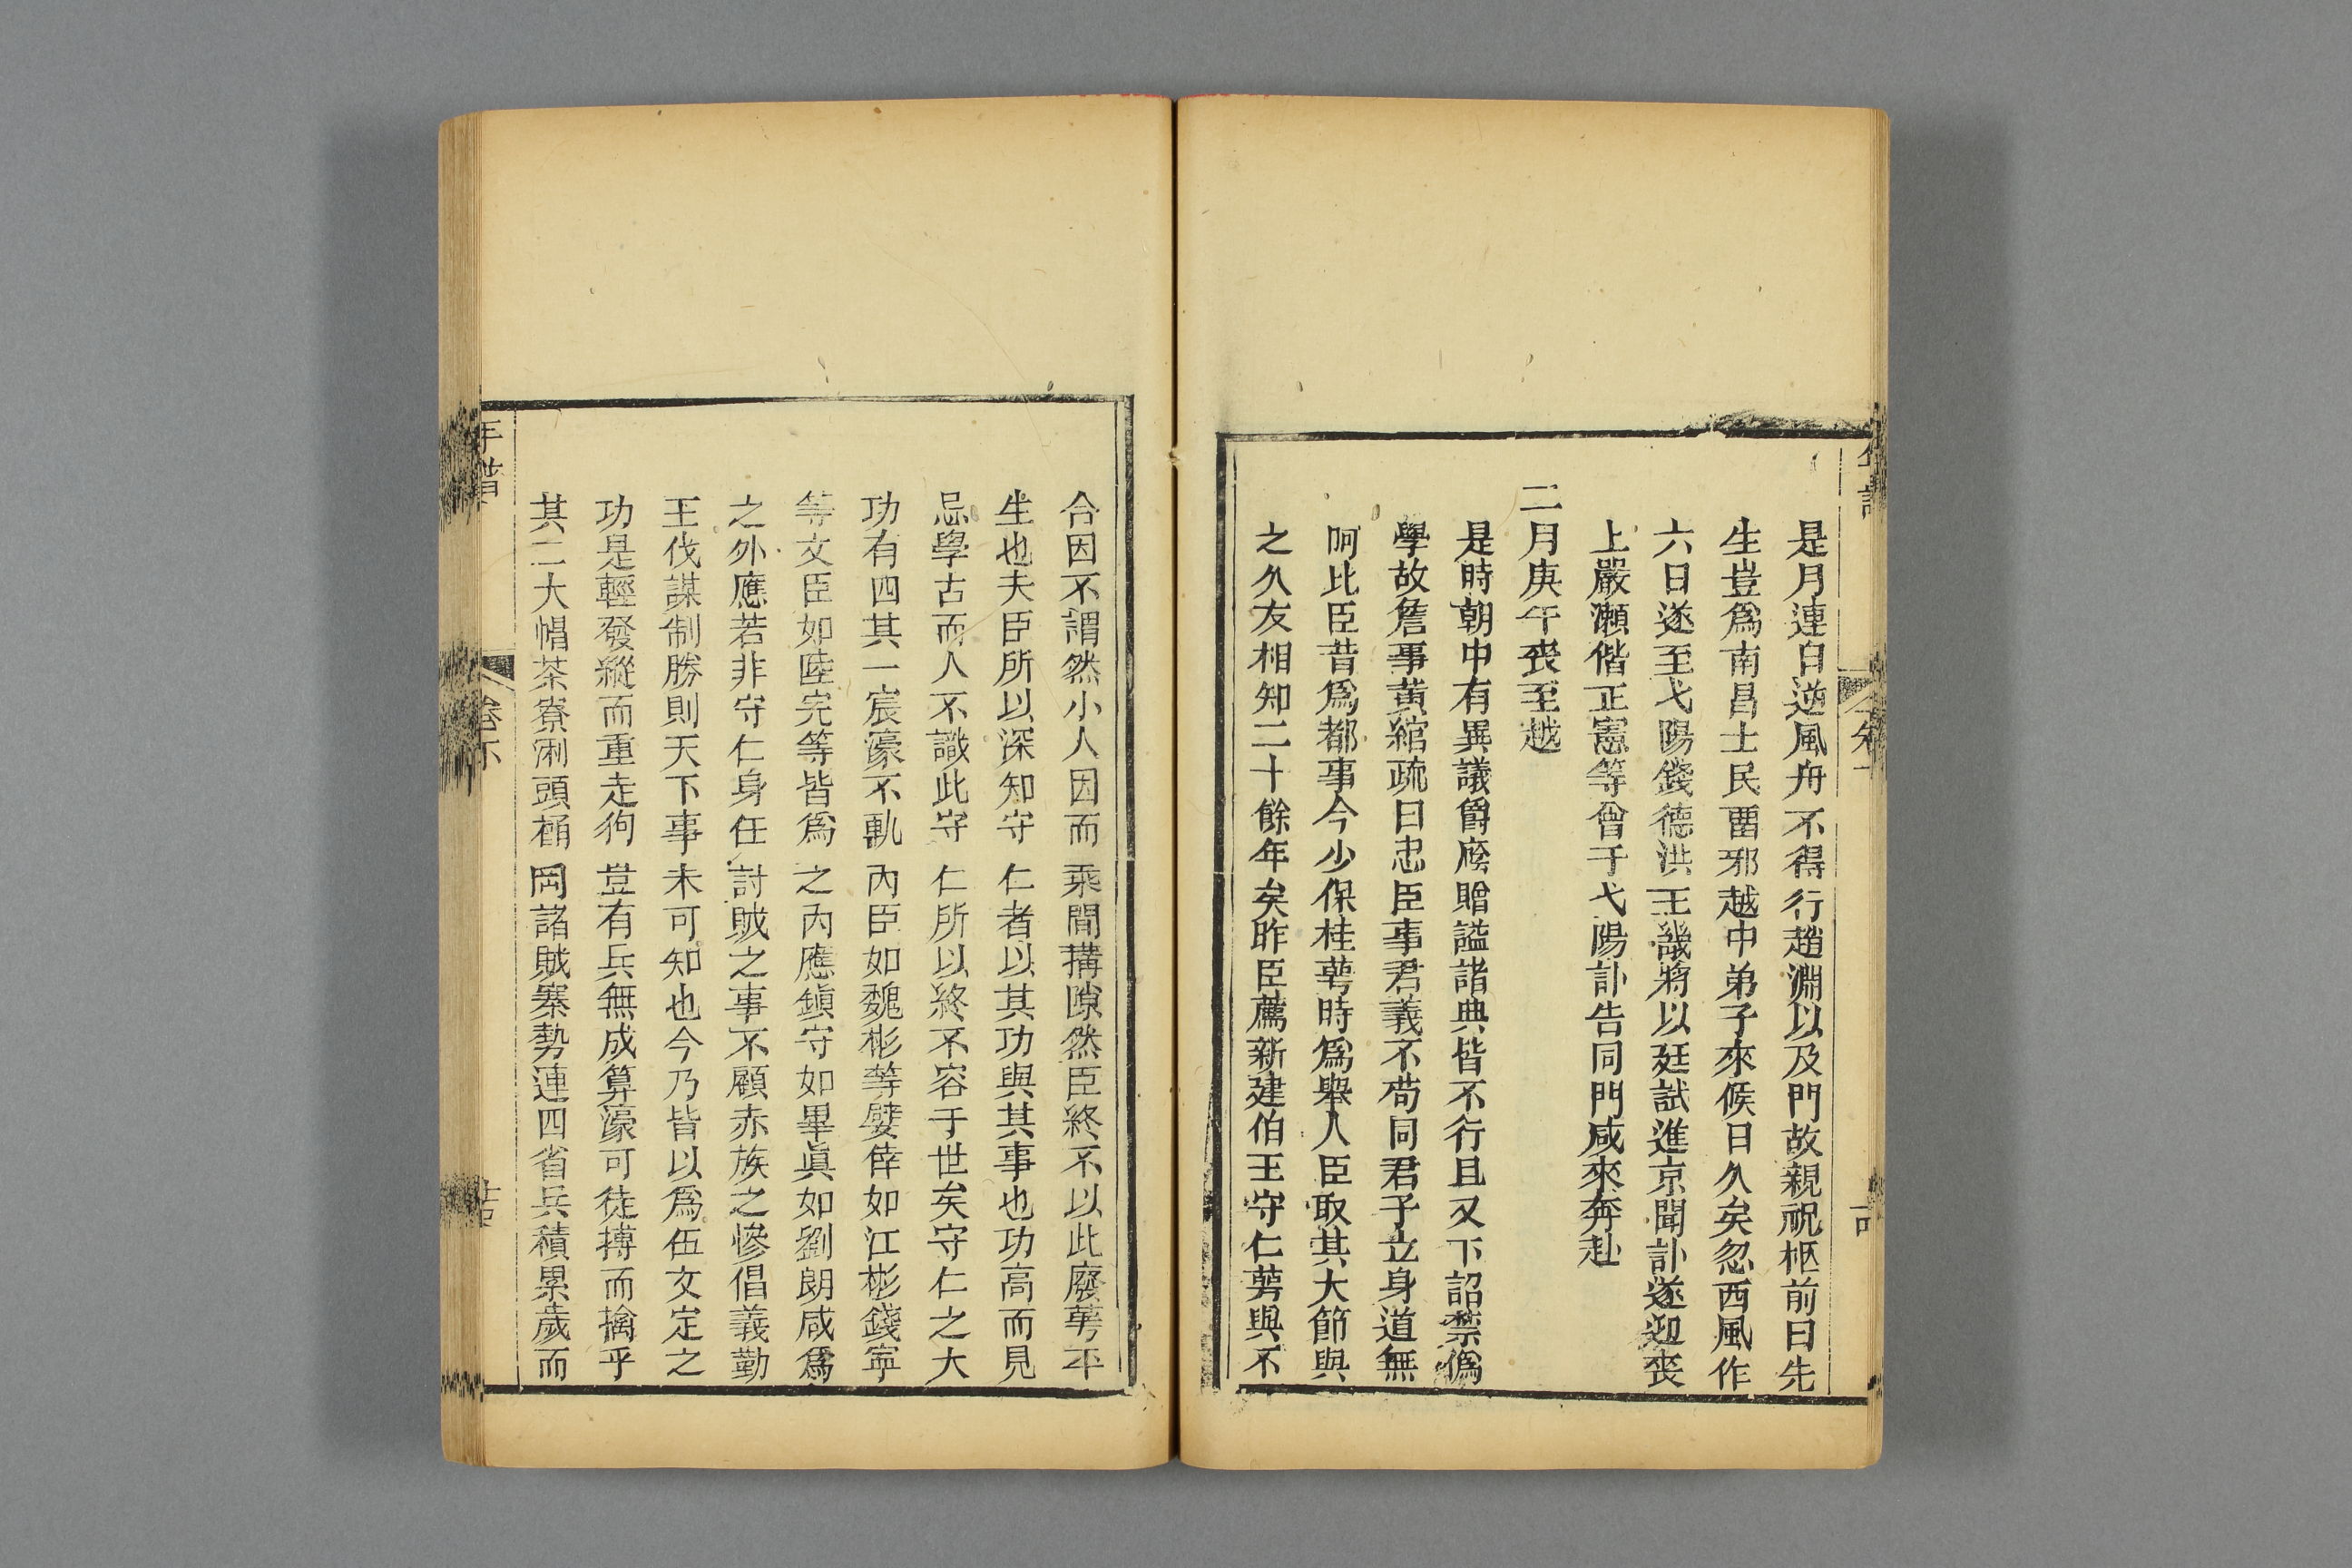 是月連日逆風舟不得行趙淵以及門故親祝柩前曰先
生豈爲南昌士民畱邪越中弟子來候日久矣忽西風作
六日遂至弋陽錢德洪王畿將以廷試進京聞訃遂迎喪
上嚴瀨偕正憲等會于弋陽訃告同門咸來奔赴
二月庚午喪至越
是時朝中有異議爵廕贈謚諸典皆不行且又下詔禁僞
學故詹事黃綰疏曰忠臣事君義不苟同君子立身道無
阿比臣昔爲都事今少保桂萼時爲舉人臣取其大節與
之久友相知二十餘年矣昨臣薦新建伯王守仁萼與不
合因不謂然小人因而乘間搆隙然臣終不以此廢萼平
生也夫臣所以深知守仁者以其功與其事也功高而見
忌學古而人不識此守仁所以終不容于世矣守仁之大
功有四其一宸濠不軌內臣如魏彬等嬖倖如江彬錢寧
等文臣如陸完等皆爲之內應鎭守如畢眞如劉朗咸爲
之外應若非守仁身任討賊之事不顧赤族之慘倡義勤
王伐謀制勝則天下事未可知也今乃皆以爲伍文定之
功是輕發縱而重走狗豈有兵無成算濠可徒搏而擒乎
其二大帽茶寮浰頭桶岡諸賊寨勢連四省兵積累歲而
年譜
卷下